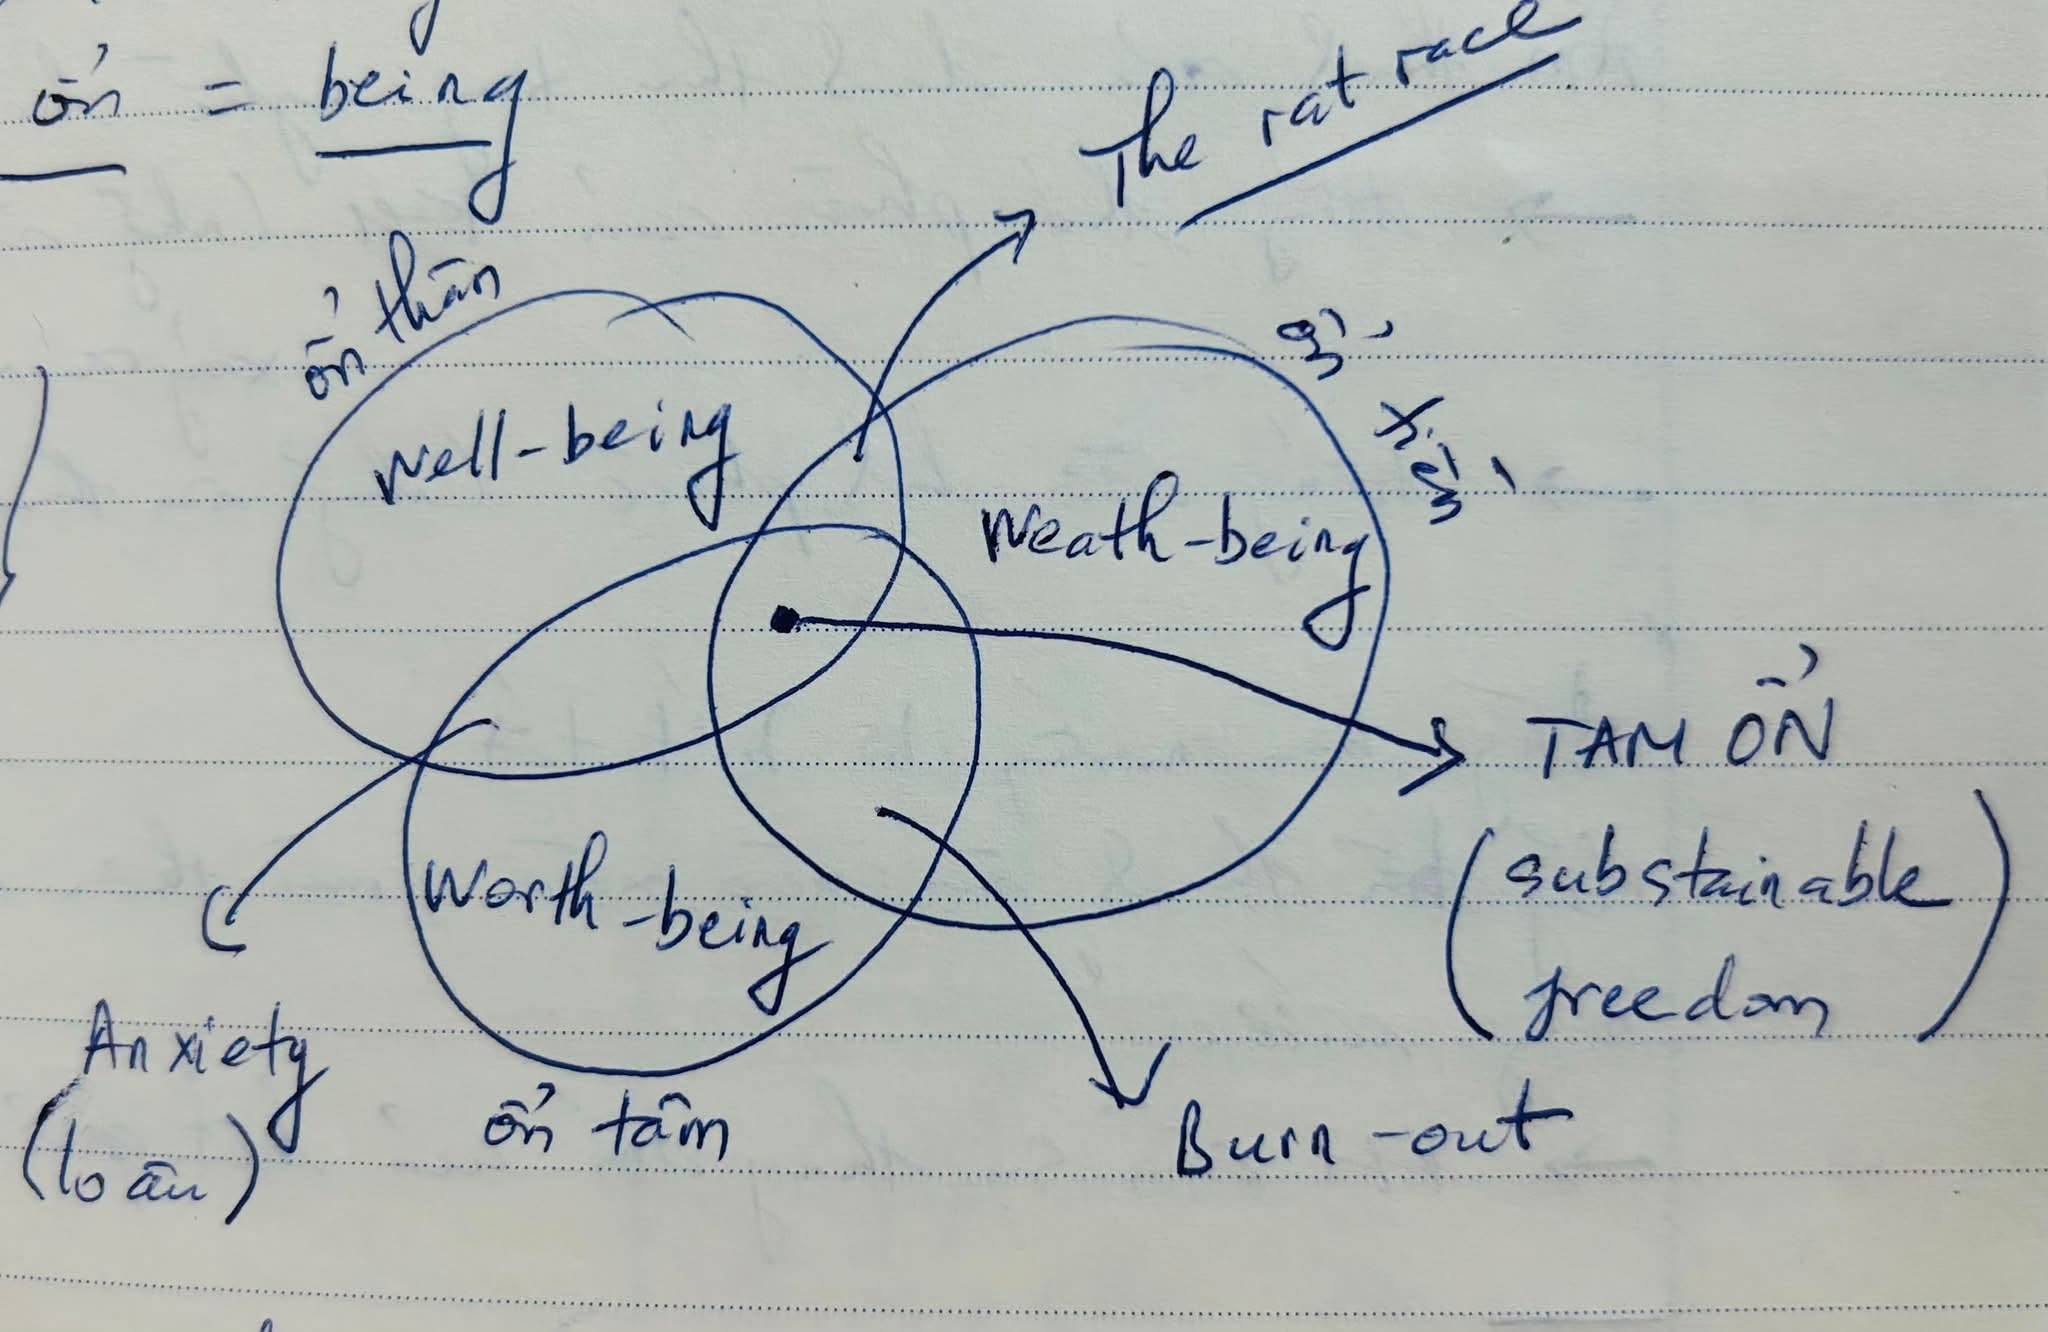 ổn = being
The rat race
ổn thân
ổn xịn
Well-being
Weath-being
TAM ỔN
(substainable
freedom)
Worth-being
Anxiety
(lo âu)
ổn tâm
Burn-out